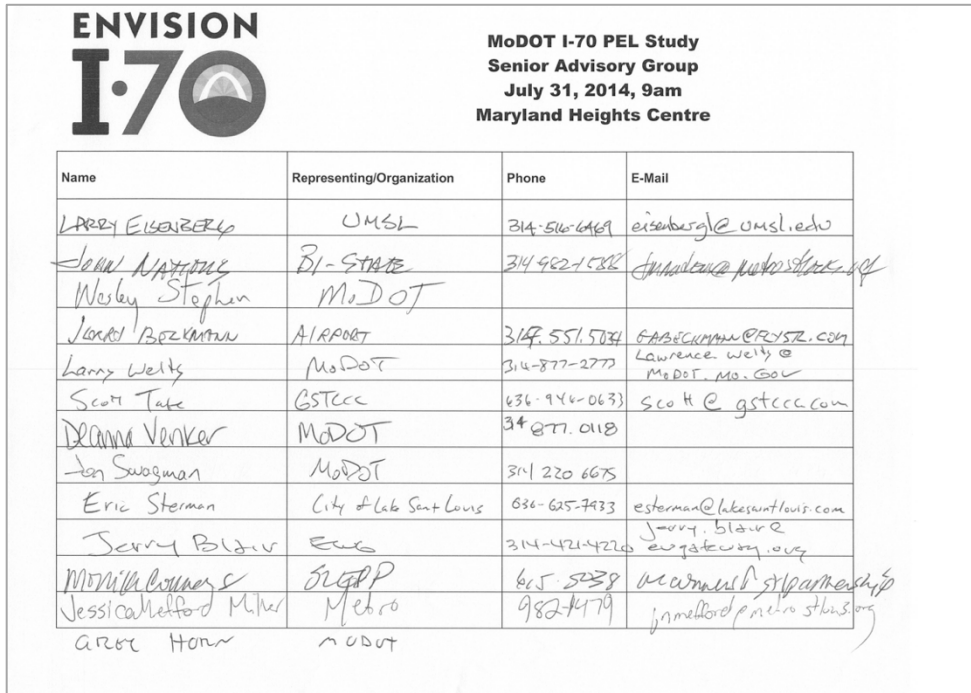 ENVISION
I-70
MoDOT I-70 PEL Study
Senior Advisory Group
July 31, 2014, 9am
Maryland Heights Centre
Name Representing/Organization Phone E-Mail
LARRY EISENBERG UMSL 314-516-6469 eisenbergl@umsl.edu
JOHN NATIONS BI-STATE 314 982-1588
Wesley Stephen MoDOT
BECKMANN AIRPORT 314.551.5034 GABECKMANN@FLYSTL.COM
Larry Welty MoDOT 314-877-2773 Lawrence.Welty@
MoDOT.MO.GOV
Scott Tate GSTCCC 636-946-0633 scott@gstccc.com
Deanna Venker MoDOT 314 877.0118
Jon Swagman MoDOT 314 220 6675
Eric Sterman City of Lake Saint Louis 636-625-7933 esterman@lakesaintlouis.com
Jerry Blair EWG 314-421-4220 jerry.blair@
ewgateway.org
615-5238
Jessica Mefford Miller Metro 982-1479 jnmefford@metrostlouis.org
HORN MODOT